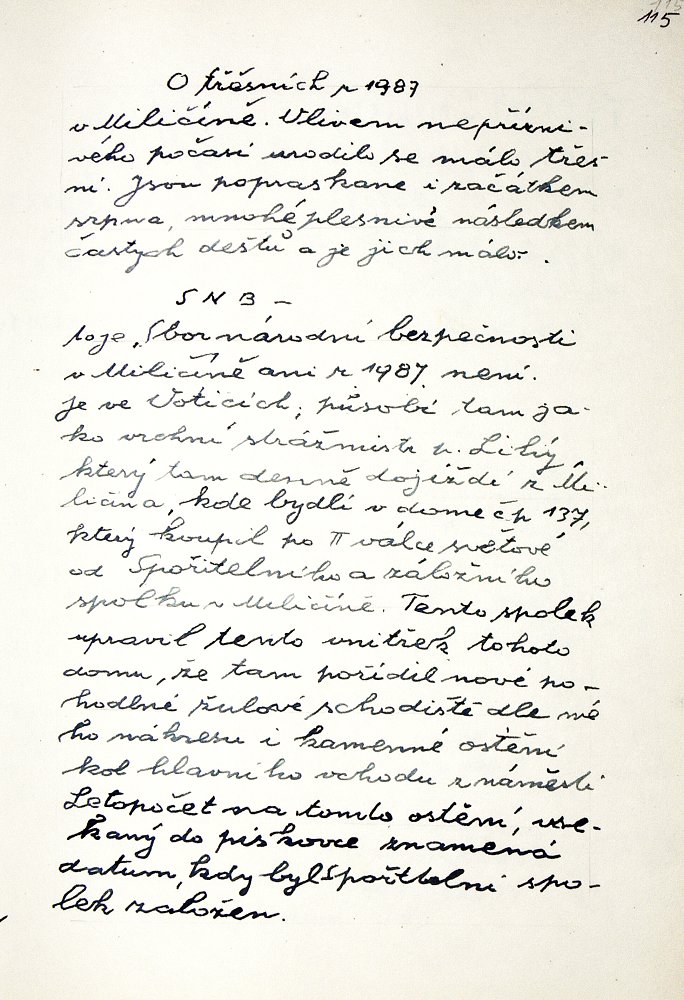 115
O třešních r 1987
v Miličíně. Vlivem nepřízni-
vého počasí urodilo se málo třeš-
ní. Jsou popraskane i začátkem
srpna, mnohé plesnivé následkem
častých deštů a je jich málo.
S N B -
to je, Sbor národní bezpečnosti
v Miličíně ani r 1987 není.
Je ve Voticích, působí tam ja-
ko vrchní strážmistr p. Lihý
který tam denně dojíždí z Mi-
ličína, kde bydlí v dome čp 137,
který koupil po II válce světové
od Spořitelního a záložního
spolku v Miličíně. Tento spolek
upravil tento vnitřek tohoto
domu, že tam pořídil nové po-
hodlné žulové schodiště dle mé
ho nákresu i kamenné ostění
kol hlavního vchodu z náměstí
Letopočet na tomto ostění, vse-
kaný do pískovce znamená
datum, kdy byl Spořitelní spo-
lek založen.